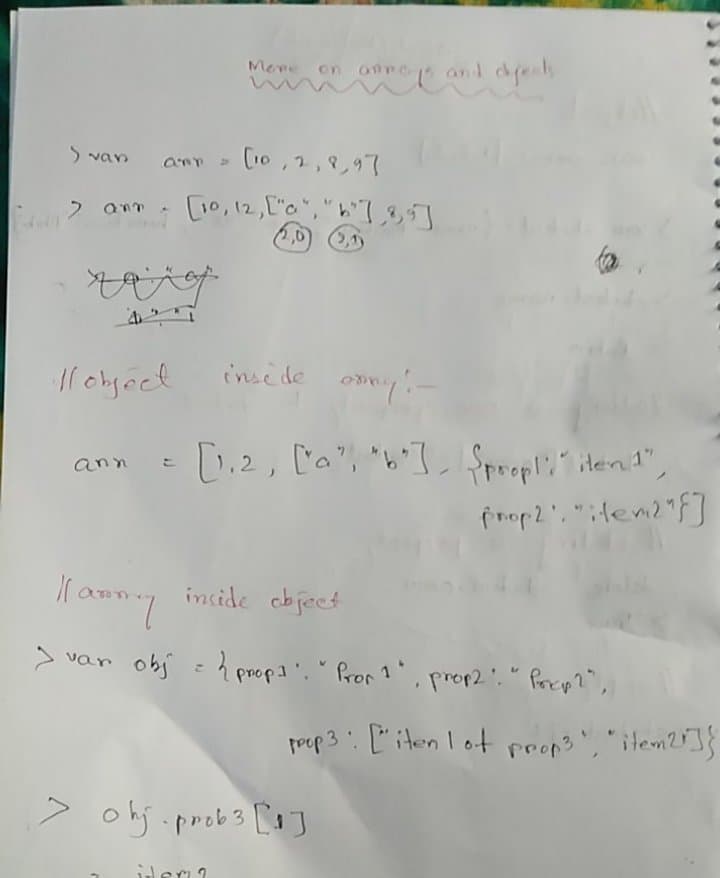 More on arrays and objects
> var arr = [10, 2, 8, 9]
> arr = [10, 12, ["a", "b"], 8, 9]
2,0 2,1
// object inside array :-
arr = [1, 2, ["a", "b"], {prop1: "item1",
prop2: "item2"}]
// array inside object
> var obj = {prop1: "Prop1", prop2: "Prop2",
prop3: ["item 1 of prop3", "item2"]}
> obj.prob3[1]
= item2